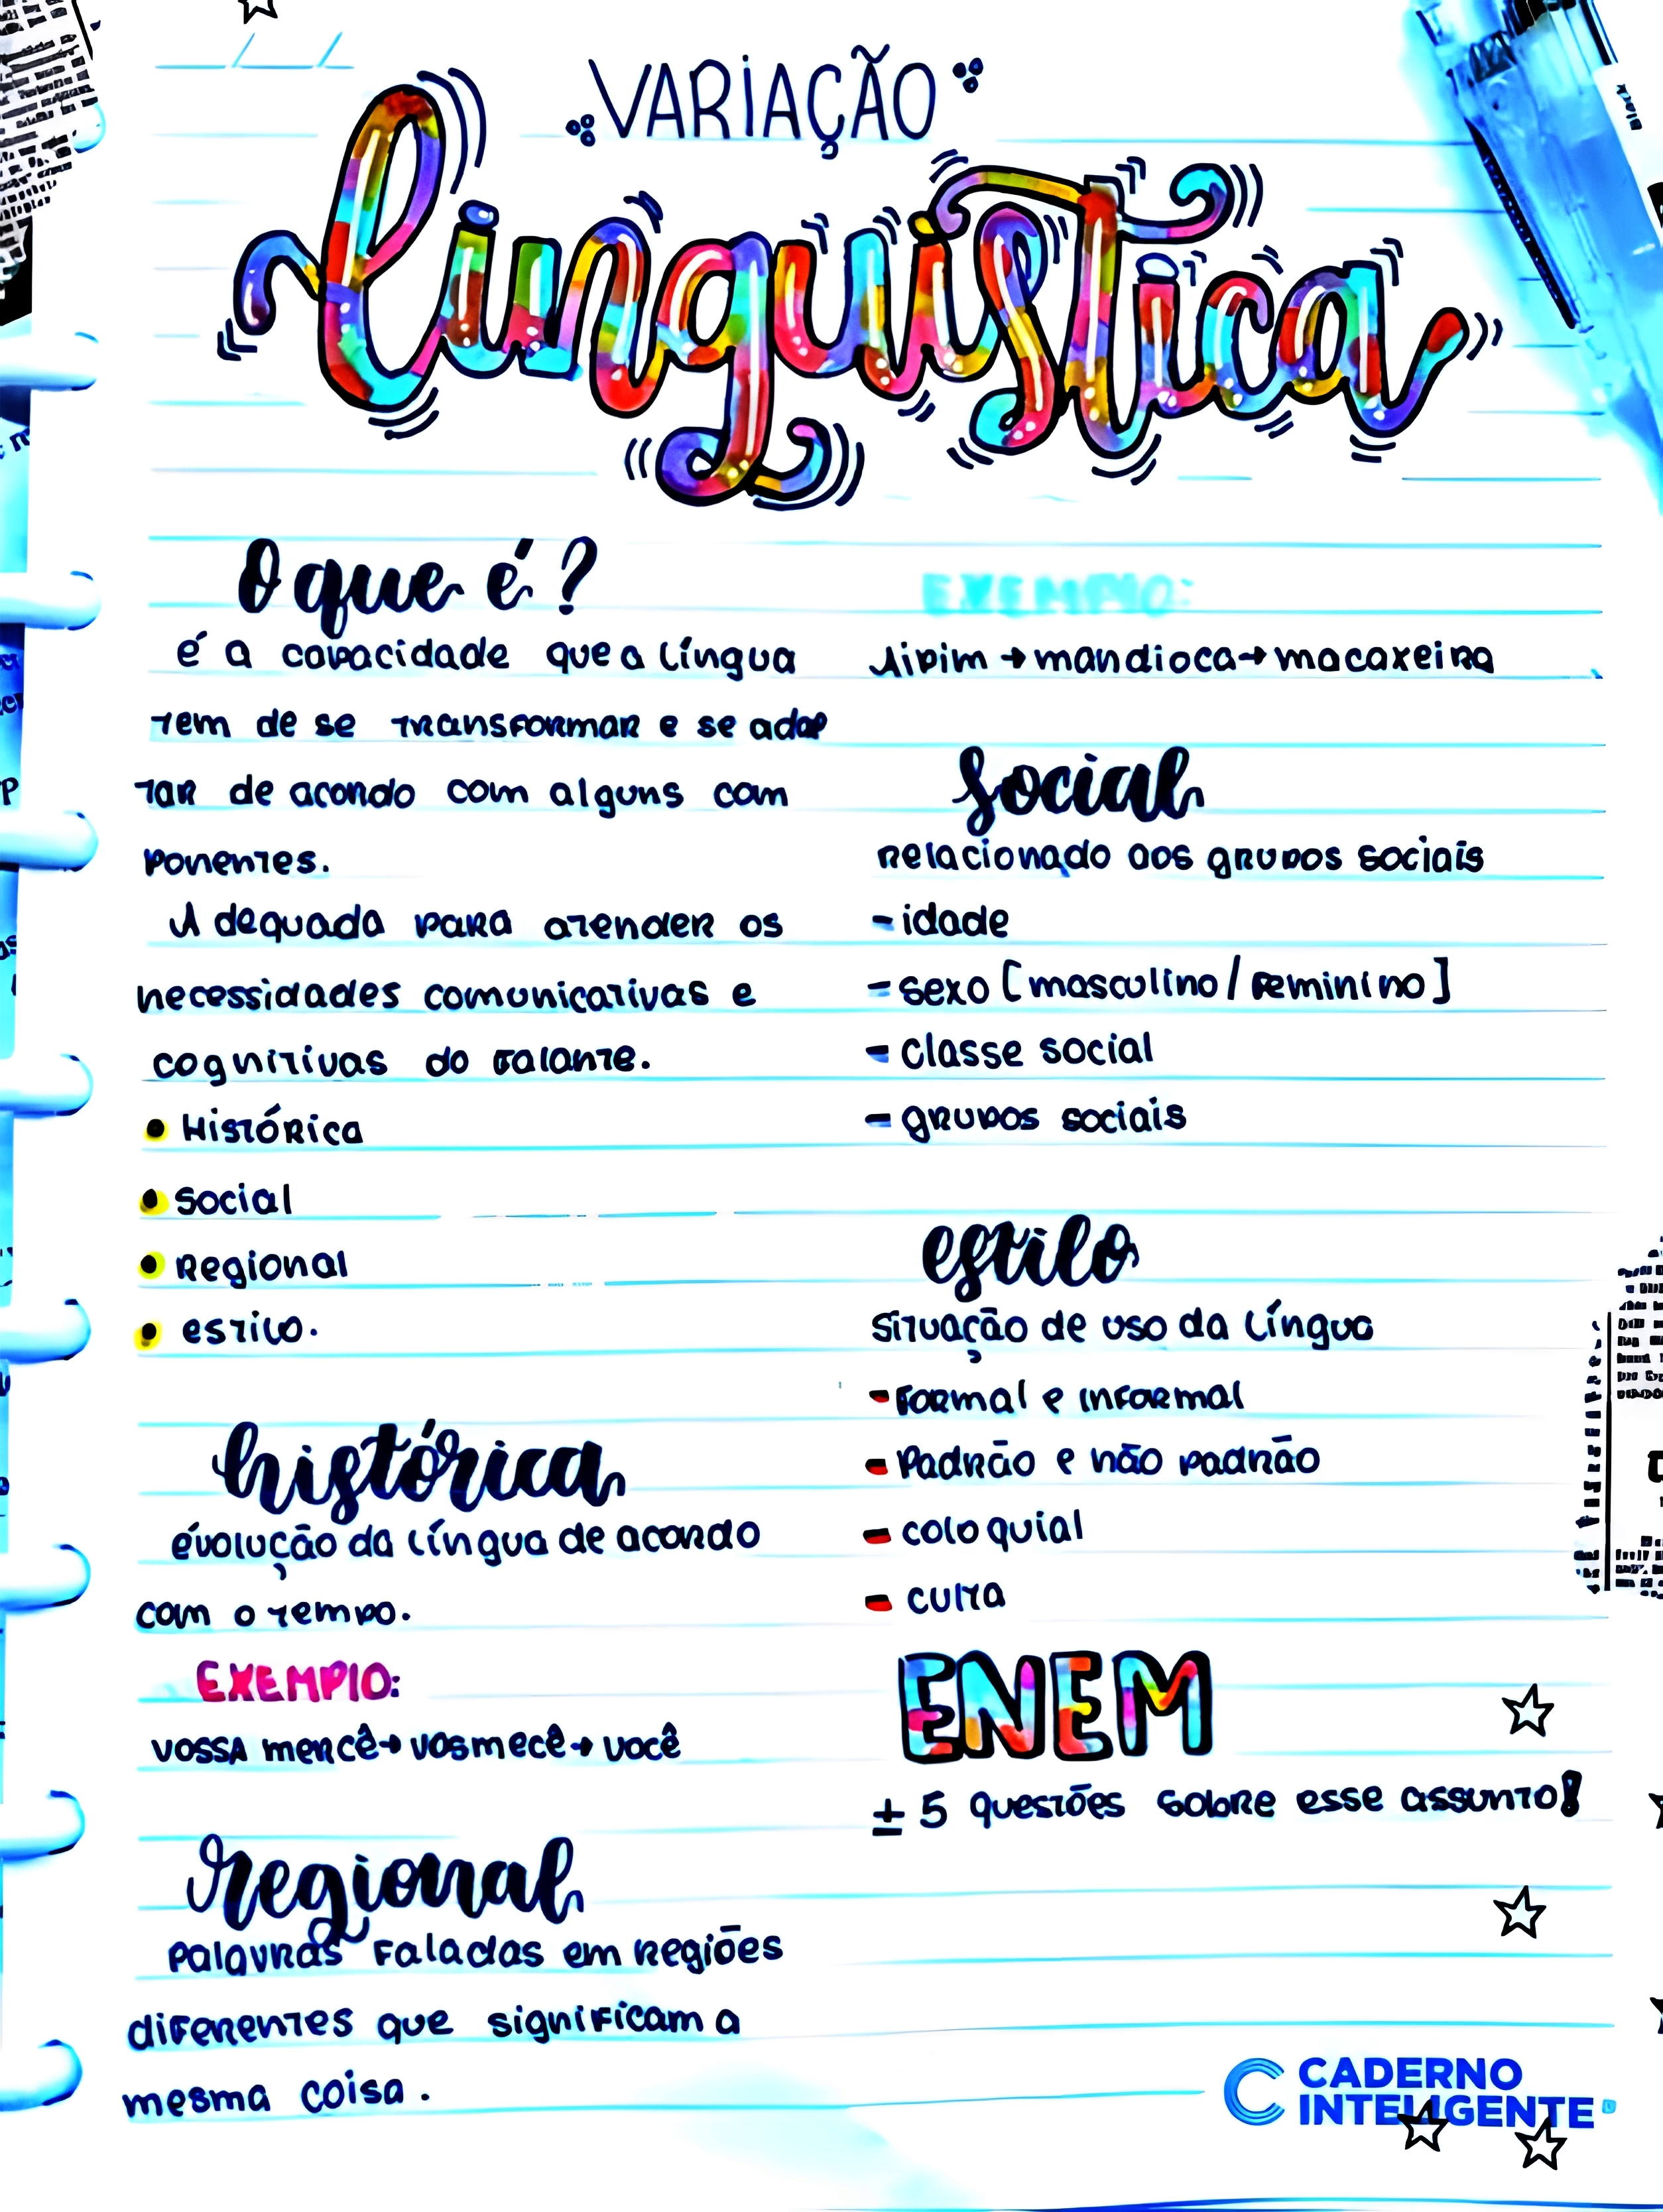 VARIAÇÃO
linguística
O que é?
é a capacidade que a língua
tem de se transformar e se adap
tar de acordo com alguns com
ponentes.
Adequada para atender os
necessidades comunicativas e
cognitivas do falante.
• Histórica
• Social
• Regional
• estilo.
histórica
évolução da língua de acordo
com o tempo.
EXEMPLO:
vossa mercê → vosmecê → você
regional
Palavras faladas em regiões
diferentes que significam a
mesma coisa.
EXEMPLO:
Aipim → mandioca → macaxeira
social
relacionado aos grupos sociais
- idade
- sexo [masculino/feminino]
- classe social
- grupos sociais
estilo
situação de uso da língua
- formal e informal
- Padrão e não padrão
- coloquial
- culta
ENEM
± 5 questões sobre esse assunto!
CADERNO
INTELIGENTE